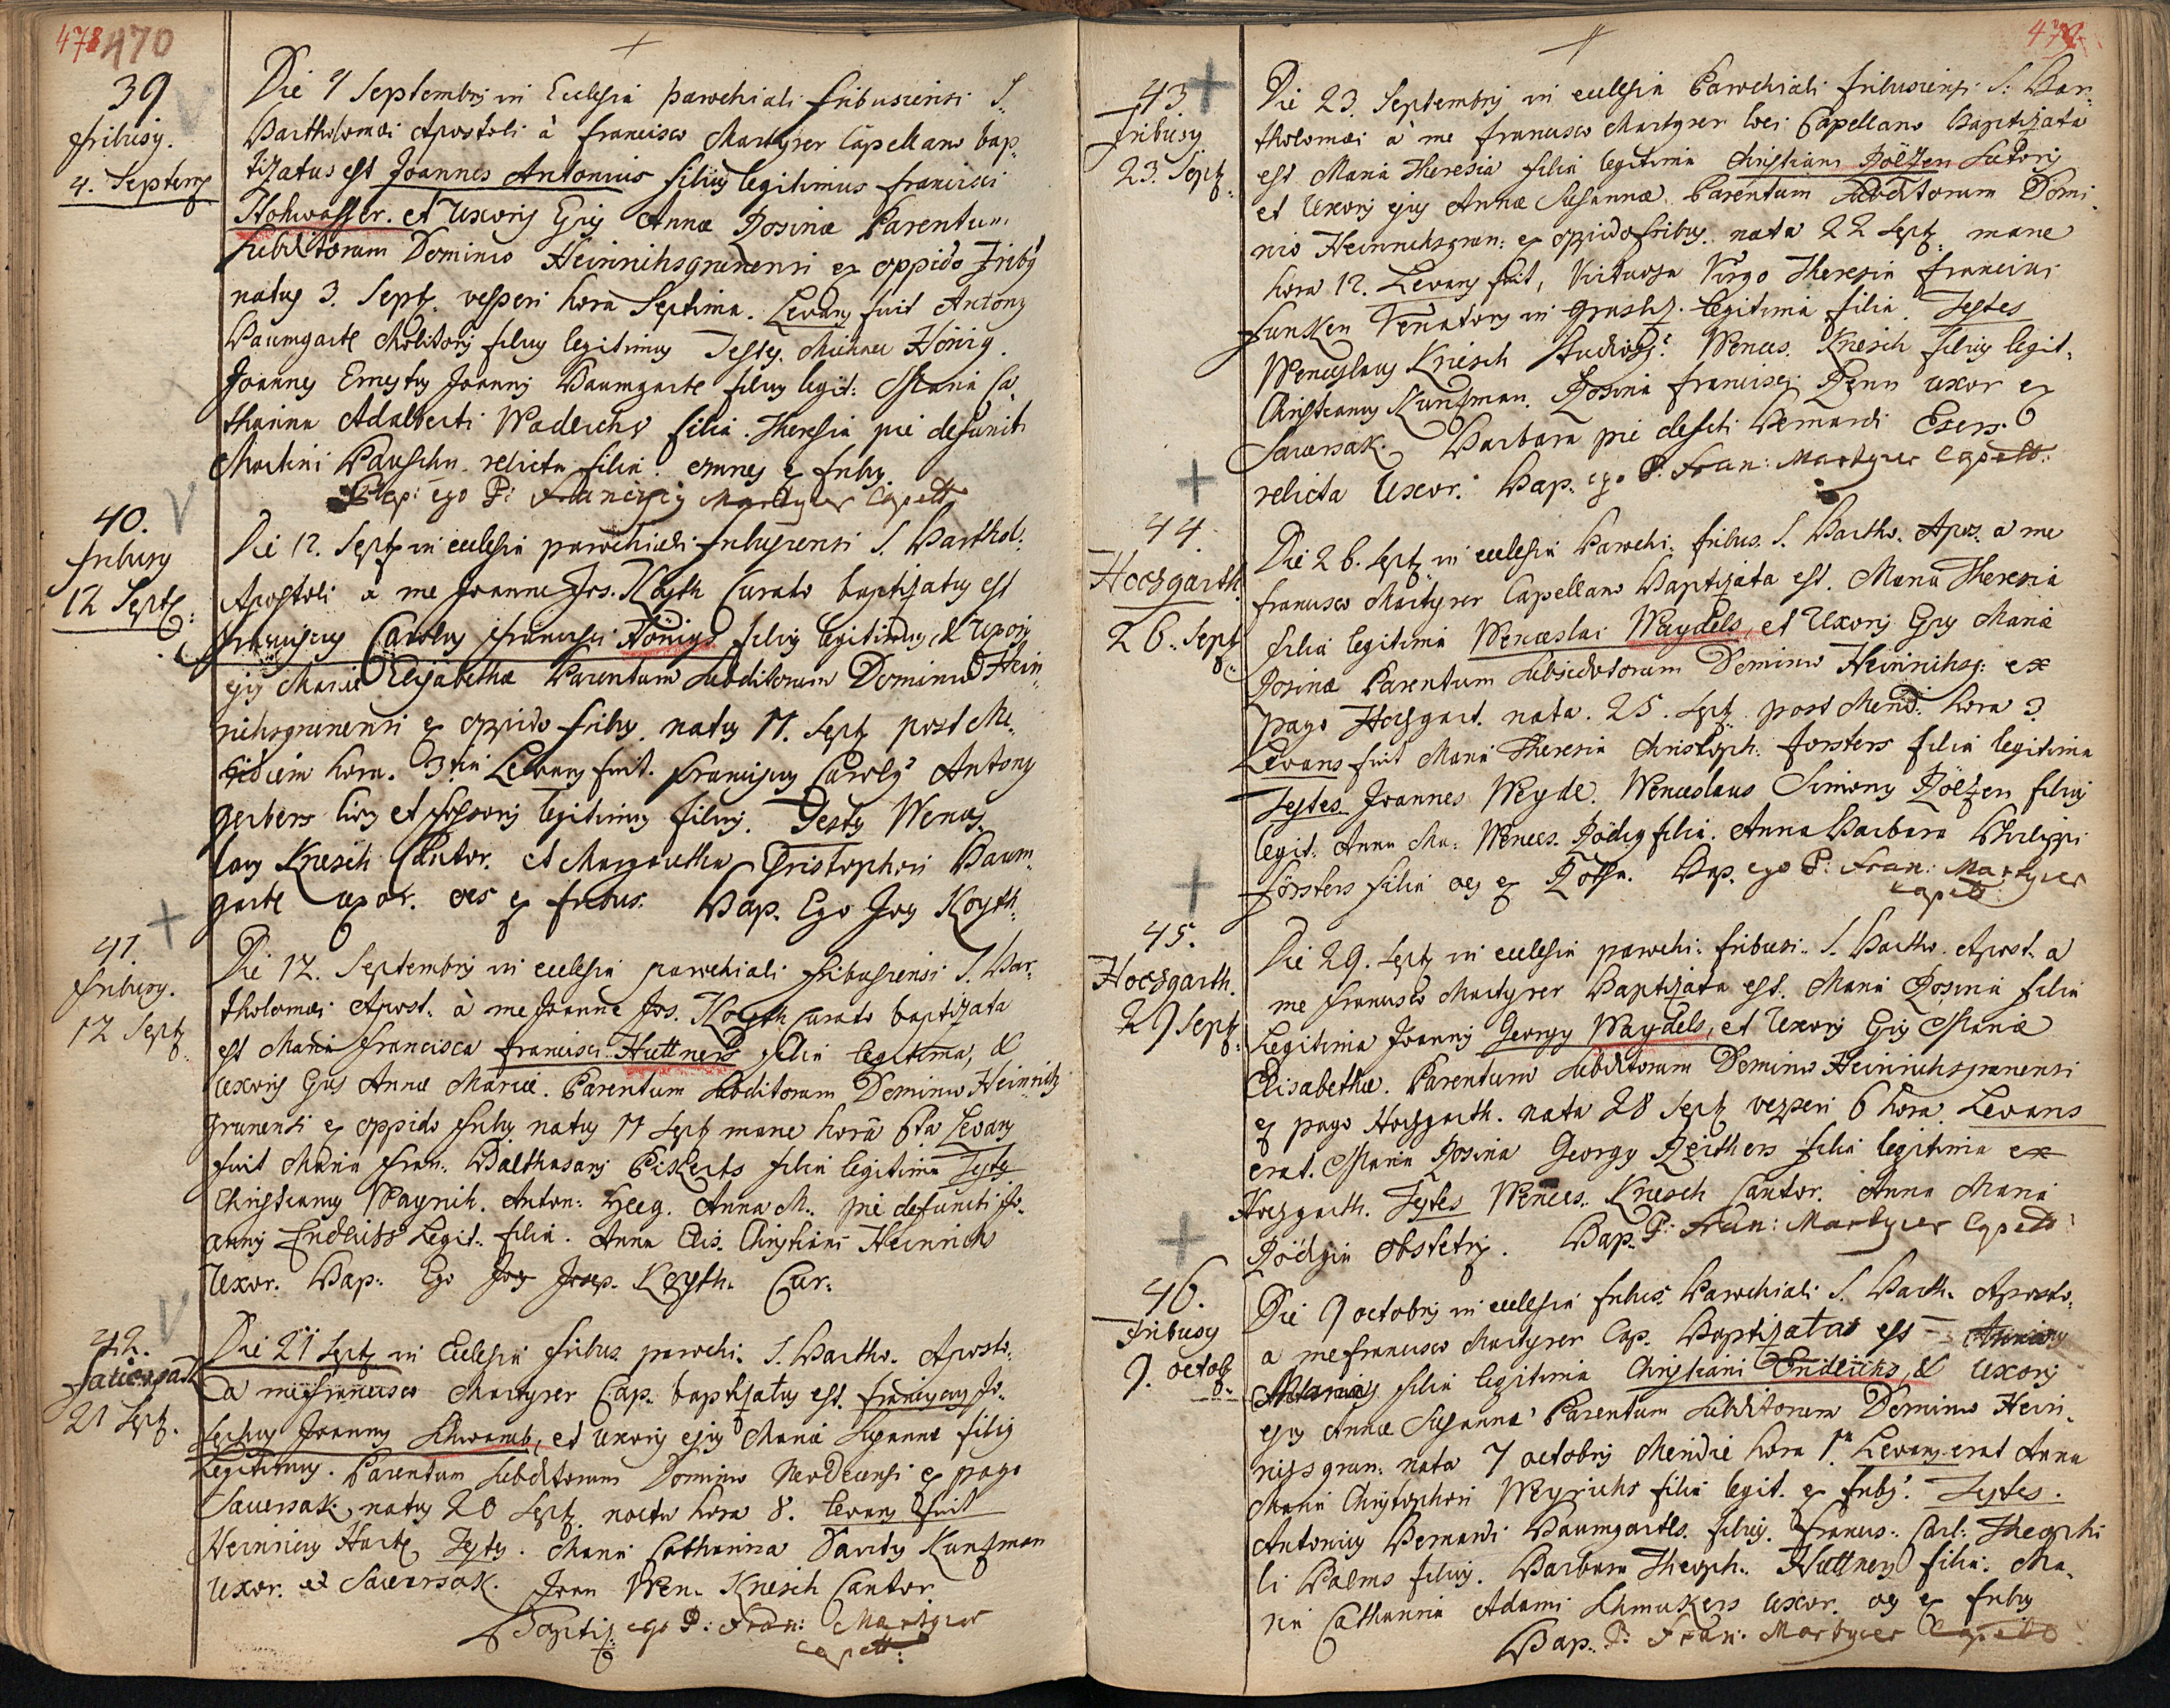 478 470
39
Fribusy.
4. Septemb
Die 4 Septembris in Ecclesia parochiali fribusiensi S.
Bartholomæi Apostoli à Francisco Martyrer Capellano bap„
tizatus est Joannes Antonius filius legitimus Francisci
Hohwasser. et Uxoris Ejus Annæ Rosinæ Parentum
subditorum Dominio Heinrichsgrunensi ex oppido Fribs
natus 3. Sept. vesperi hora Septima. Levans fuit Antony
Baumgartl Molitoris filius legitimus Testes. Michael Hönig.
Joannes Ernestus Joannis Baumgartl filius legit: Maria Ca„
tharina Adalberti Waderichs filia. Theresia pie defuncti
Martini Pauschn relicta filia. omnes ex fribus.
Bap: ego P: Franciscus Martyrer Capell
40.
Fribusy
12 Sept:
Die 12. Sept in ecclesia parochiali fribusiensi S. Barthol:
Apostoli à me Joanne Jos. Koyth Curato baptizatus est
Franciscus Carolus Francisci Hönigs filius legitimus, & Uxoris
ejus Mariæ Elisabethæ Parentum subditorum Dominio Hein„
richsgrunensi ex oppido fribus. natus 11. Sept post Me„
ridiem hora. 3tia Levans fuit. Franciscus Carolus Antony
gerbers Civis et legitimus filius. Testes Wences„
laus Kriesch Cantor. et Margaretha Christophori Baum„
gartl uxor. oes ex fribus. Bap. Ego Joes Koyth.
41.
Fribusy.
12 Sept
Die 12. Septembris in ecclesia parochiali fribusiensi S. Bar„
tholomæi Apost. à me Joanne Jos. Koyth Curato baptizata
est Maria Francisca Francisci Huttners filia legitima, &
Uxoris Ejus Annæ Mariæ. Parentum subditorum Dominio Heinrichs
grunensi ex oppido fribus natus 11 Sept mane horâ 6ta Levans
fuit Maria Fran. Balthasaris Pickerts filia legitima Testes
Christianus Waynich. Anton: Heeg. Anna M. pie defuncti Jo„
annis Enderss Legit. filia. Anna Elis. Christiani Heinrichs
Uxor. Bap. Ego Joes Josep. Koyth. Cur.
42.
Sauersak
21 Sept.
Die 21 Sept in Ecclesia fribus. parochi. S. Bartho. Aposto.
a me Francisco Martyrer Cap. baptizatus est. Franciscus Jo„
sephus Joannis Schwamb, et Uxoris ejus Mariæ Susannæ filius
Legitimus. Parentum subditorum Dominio Neodecensi ex pago
Sauersak, natus 20 Sept. noctu hora 8. Levans fuit
Heinricus Hart Testes. Maria Catharina Kunzman
Uxor. ex Sauersak. Joan Wen. Kriesch Cantor
Baptiz: ego P: Fran: Martyrer
capell:
43
Fribusy
23. Sept.
Die 23. Septembris in ecclesia Parochiali fribusiensi S. Bar„
tholomæi à me Francisco Martyrer loci Capellano Baptizata
est Maria Theresia filia legitima Christiani Pölzen Sutoris
et Uxoris ejus Annæ Susannæ. Parentum subditorum Domi„
nio Heinrichsgrun: ex oppido fribus. nata 22 Sept. mane
hora 12. Levans fuit, Virtuosa Virgo Theresia Francisci
Funken Venatoris in legitima filia. Testes
Wenceslaus Kriesch Wences. Kriesch filius legit.
Christianus Kunzman. Rosina Francisci uxor ex
Sauersak. Barbara pie defcti Bernardi Esers
relicta Uxor. Bap. ego P: Fran: Martyrer Capell:
44.
Hochgarth.
26. Sept
Die 26. Sept in ecclesia Parochi. fribus. S. Bartho. Apos. a me
Francisco Martyrer Capellano Baptizata est. Maria Theresia
filia legitima Wenceslai Waydels, et Uxoris Ejus Mariæ
Rosinæ Parentum subditorum Dominio Heinrichsg: ex
pago Hochgart. nata. 25. Sept. post Merid. hora 3
Levans fuit Maria Theresia Christoph. Forsters filia legitima
Testes. Joannes Weyde. Wenceslaus Simonis Pölzen filius
legit. Anna Ma: Wences. Rödig filia. Anna Barbara Philippi
Försters filia oes ex Rotha. Bap. ego P: Fran: Martyrer
capell
45.
Hochgarth.
29 Sept.
Die 29. Sept in ecclesia parochi: fribusi.. S. Bartho. Apost. a
me Francisco Martyrer Baptizata est. Maria Rosina filia
Legitima Joannis Georgy Waydels, et Uxoris Ejus Mariæ
Elisabethæ. Parentum subditorum Dominio Heinrichsgrunensi
ex pago Hochgarth. nata 28 Sept vesperi 6 hora. Levans
erat. Maria Rosina Georgy Reithers filia legitima ex
Hochgarth. Testes Wences. Kriesch Cantor. Anna Maria
Rödigin Obstetrix. Bap. P: Fran: Martyrer Capell:
46.
Fribusy
9. octob
Die 9 octobris in ecclesia fribus. Parochiali S. Barth. Aposto.
a me Francisco Martyrer Cap. Baptizatas est
filia legitima Christiani Enderichs, & Uxoris
ejus Annæ Susannæ Parentum subditorum Dominio Hein„
richsgrun: nata 7 octobris Meridie hora 1ma Levans erat Anna
Maria Christophori Weyrichs filia legit. ex frib. Testes.
Antonius Bernardi Baumgartls. filius. Francis: Carl: Theophi
li Palms filius. Barbara Theoph. Huttners filia. Ma„
ria Catharina Adami Schmukers uxor. oes ex fribus
Bap. P. Fran: Martyrer Capell